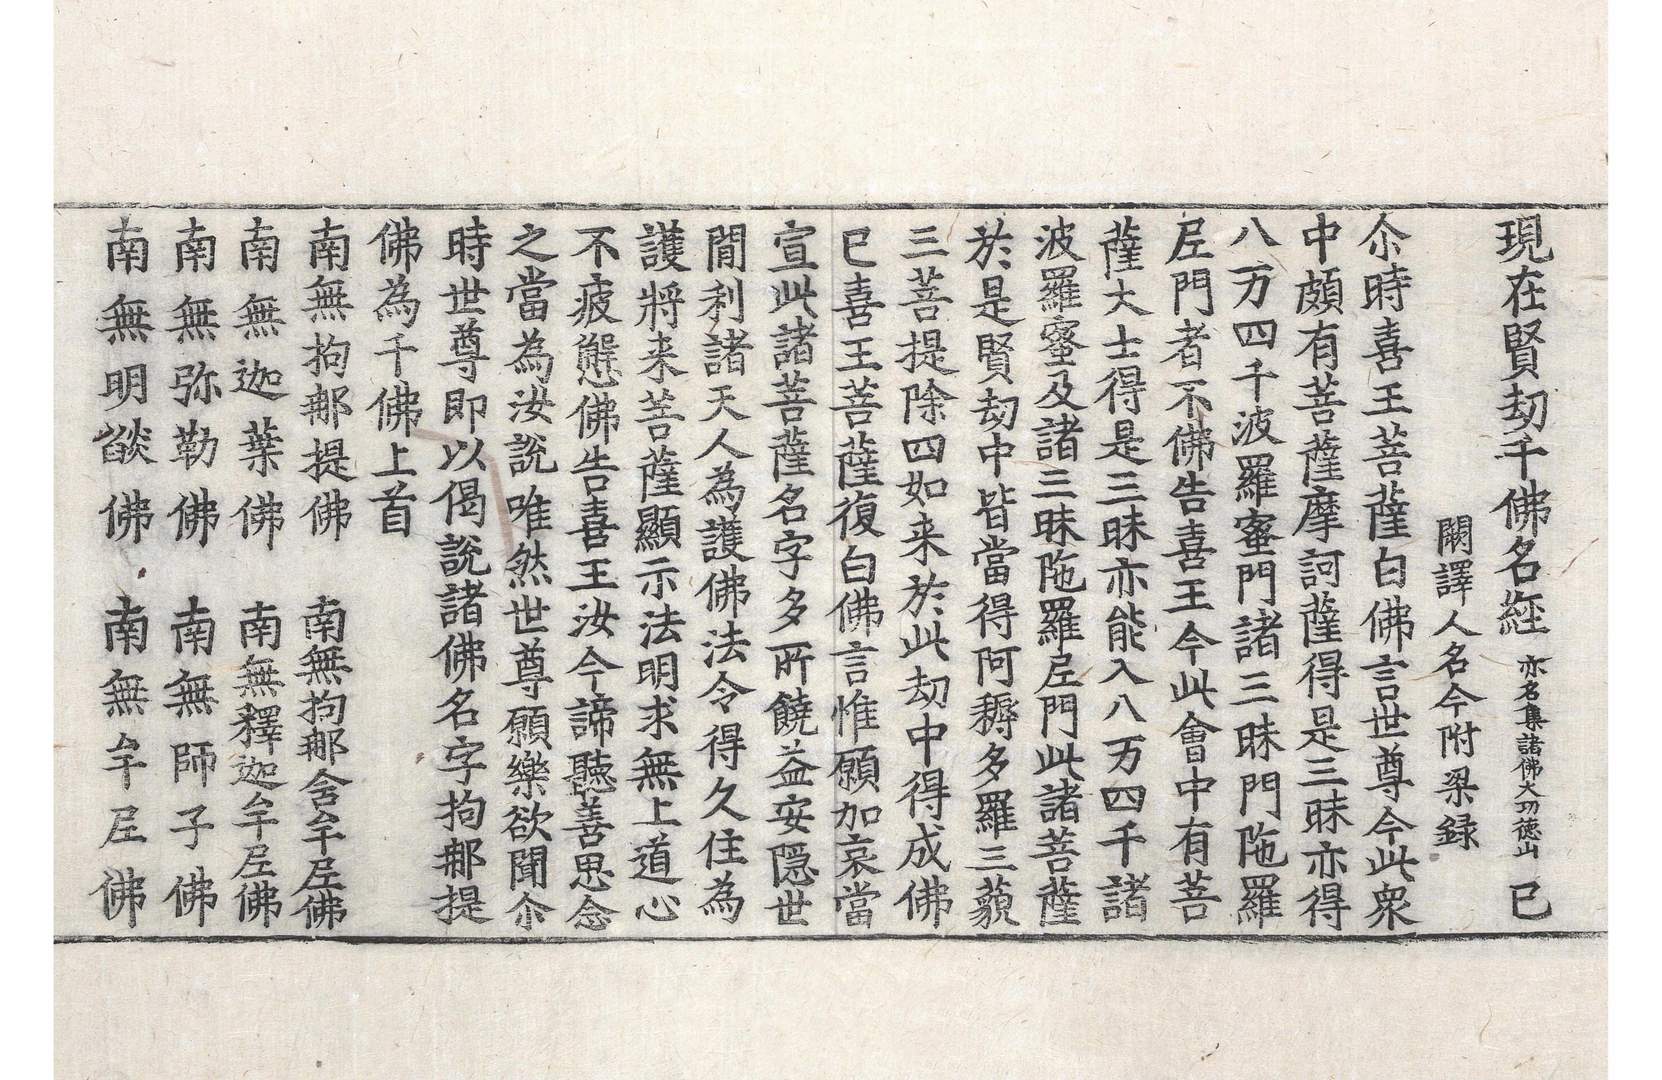 現在賢刼千佛名經 亦名集諸佛大功徳山 已
闕譯人名今附梁録
尒時喜王菩薩白佛言世尊今此衆
中頗有菩薩摩訶薩得是三昧亦得
八万四千波羅蜜門諸三昧門陁羅
𡰱門者不佛告喜王今此會中有菩
薩大士得是三昧亦能入八万四千諸
波羅蜜及諸三昧陁羅𡰱門此諸菩薩
於是賢刼中皆當得阿耨多羅三藐
三菩提除四如来於此刼中得成佛
已喜王菩薩復白佛言惟願加哀當
宣此諸菩薩名字多所饒益安隱世
間利諸天人為護佛法令得久住為
護將来菩薩顯示法明求無上道心
不疲懈佛告喜王汝今諦聽善思念
之當為汝說唯然世尊願樂欲聞尒
時世尊即以偈說諸佛名字拘那提
佛為千佛上首
南無拘那提佛 南無拘那含牟𡰱佛
南無迦葉佛 南無釋迦牟𡰱佛
南無弥勒佛 南無師子佛
南無明𦦨佛 南無牟𡰱佛